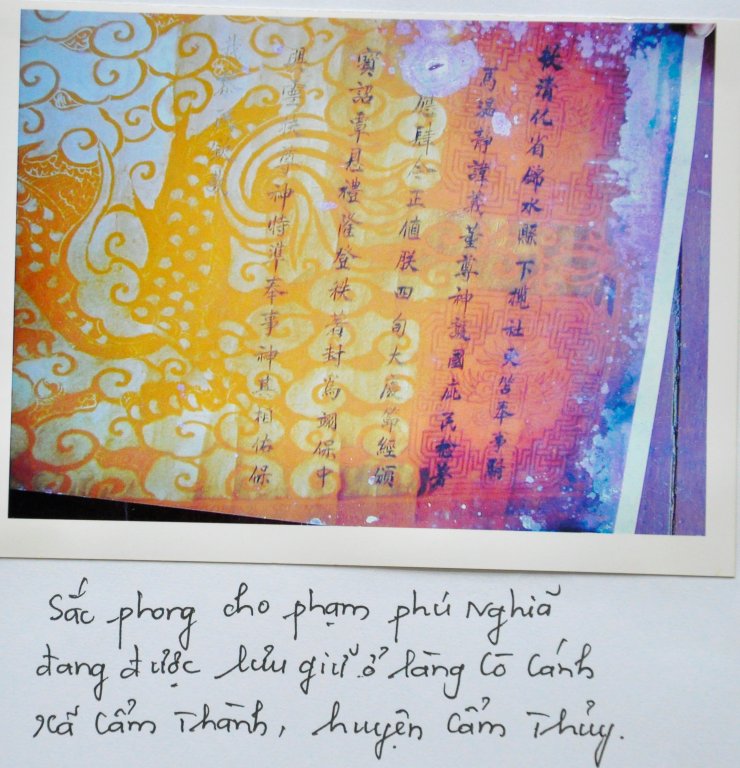 敕清化省錦水縣下攬社奉事
靜諱義董尊神護國庇民稔著
應肆今正值朕四旬大慶節經頒
寶詔覃恩禮隆登秩著封為翊保中
興靈扶尊神特準奉事神其相佑保
Sắc phong cho phạm phú Nghiã
đang được lưu giữ ở làng Cò Cánh
xã Cẩm Thành, huyện Cẩm Thủy.